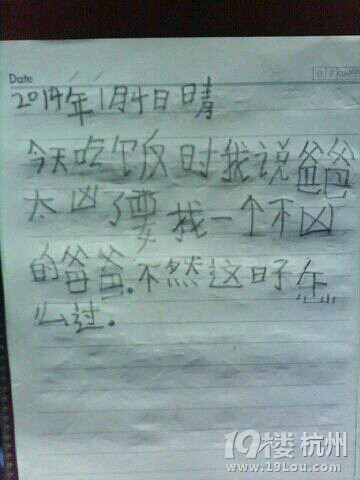 Date
2014年1月4日晴
今天吃饭时我说爸爸
太凶了要找一个不凶
的爸爸.不然这日子怎
么过.
19楼 杭州
www.19lou.com